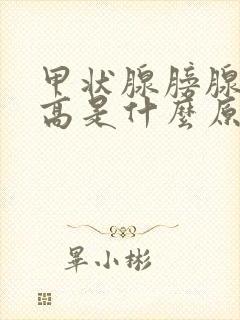 甲状腺膀腺
高是什麼原
畢小彬